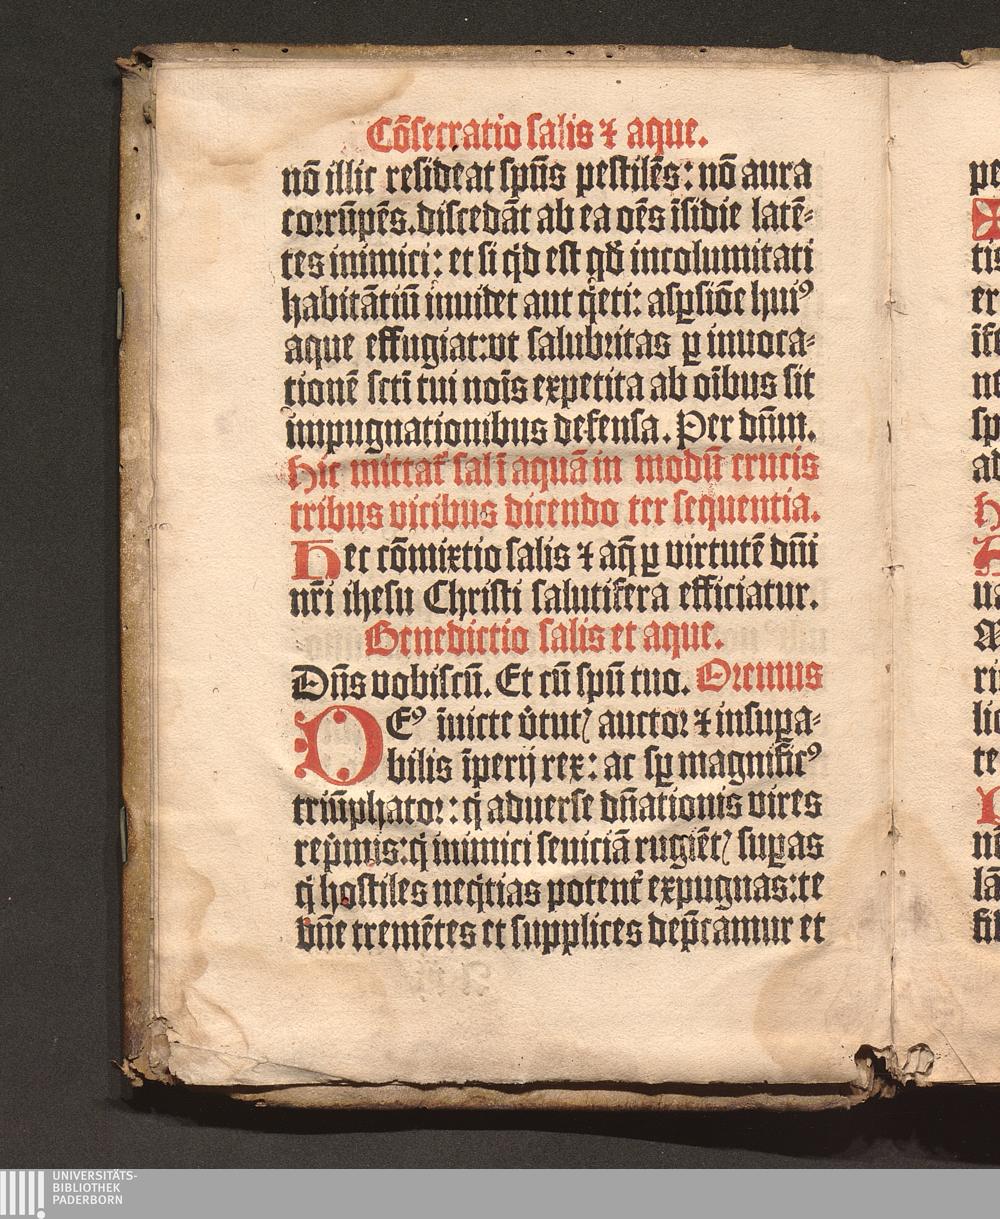 Cōsecratio salis ⁊ aque.
nō illic resideat spūs pestilēs: nō aura
corrūpēs. discedāt ab ea oēs īsidie latē-
tes inimici: et si qͥd est qđ incolumitati
habitātiū inuidet aut qͥeti: asꝑsiōe huiꝰ
aque effugiat: vt salubritas ꝑ inuoca-
tionē scti tui noīs expetita ab oībus sit
impugnationibus defensa. Per dn̄m.
Hic mittat᷑ sal ī aquā in modū crucis
tribus vicibus dicendo ter sequentia.
Hec cōmixtio salis ⁊ aq̄ ꝑ virtutē dn̄i
nr̄i ihesu Christi salutifera efficiatur.
Benedictio salis et aque.
Dn̄s vobiscū. Et cū spū tuo. Oremus
DEꝰ īuicte v̓tutꝭ auctor ⁊ insuꝑa-
bilis īperij rex: ac sꝑ magnificꝰ
triūphator: q̇ aduerse dn̄ationis vires
rep̓mis: q̇ inimici seuiciā rugiētꝭ suꝑas
q̇ hostiles neqͥtias potent᷑ expugnas: te
dn̄e tremētes et supplices dep̄camur et
pe
tis
er
ne
sp
ad
H
ua
rin
lic
te
lā
UNIVERSITÄTS-
BIBLIOTHEK
PADERBORN